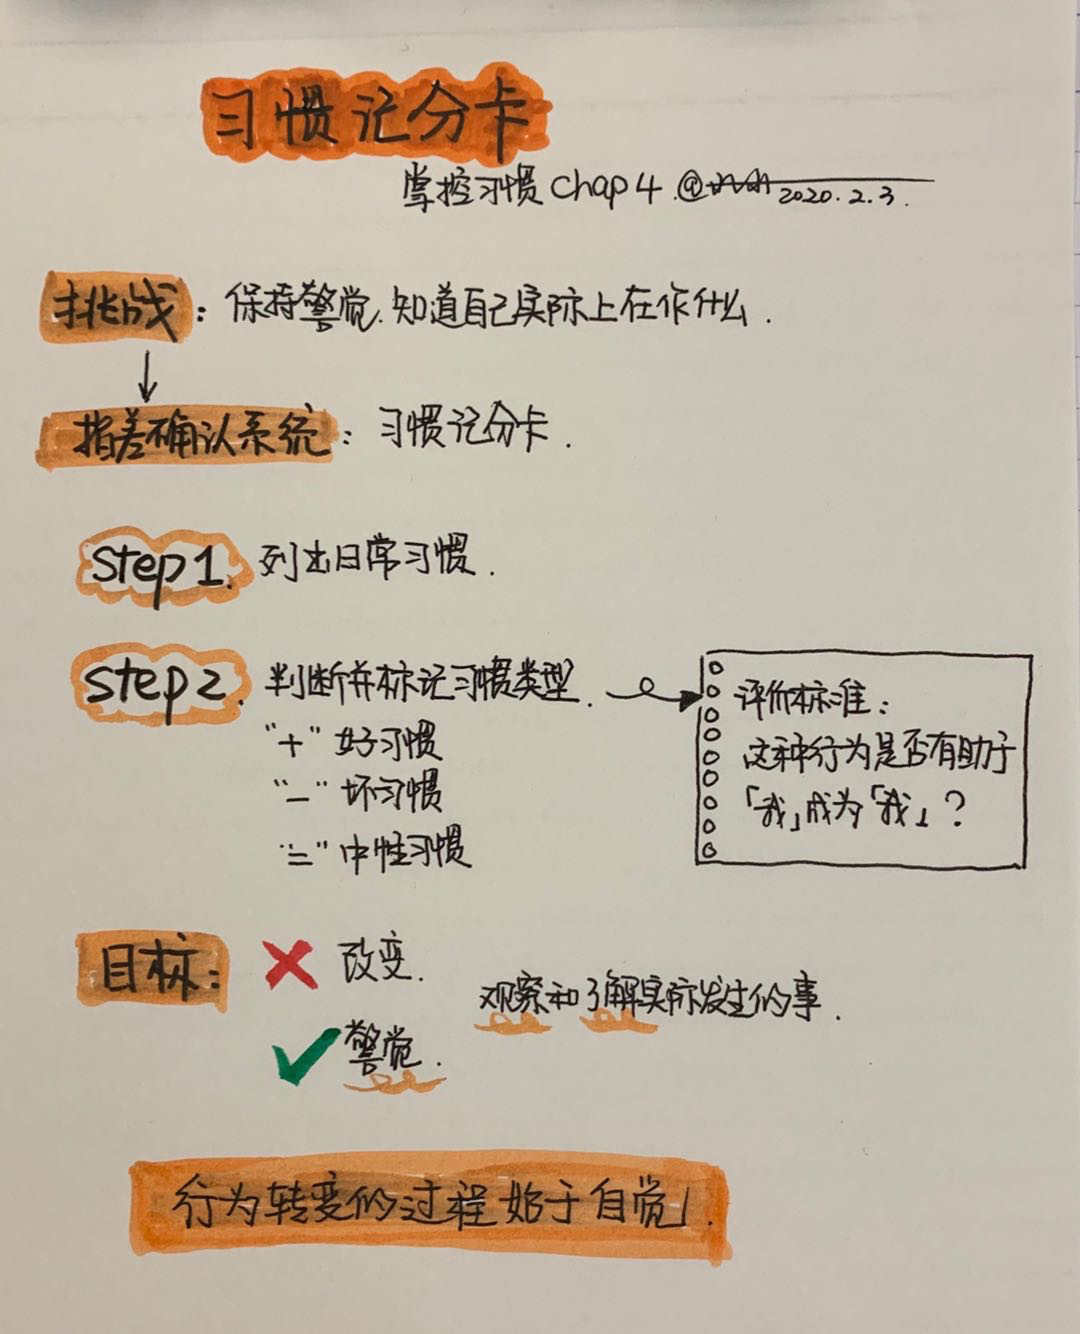 习惯记分卡
掌控习惯 Chap 4 @ 2020.2.3.
挑战：保持警觉.知道自己实际上在作什么.
指差确认系统：习惯记分卡.
Step1. 列出日常习惯.
Step2. 判断并标记习惯类型.
"+"好习惯
"—"坏习惯
"="中性习惯
评价标准：
这种行为是否有助于
「我」成为「我」？
目标： 改变.
观察和了解实际发生的事.
警觉.
行为转变的过程始于自觉」.